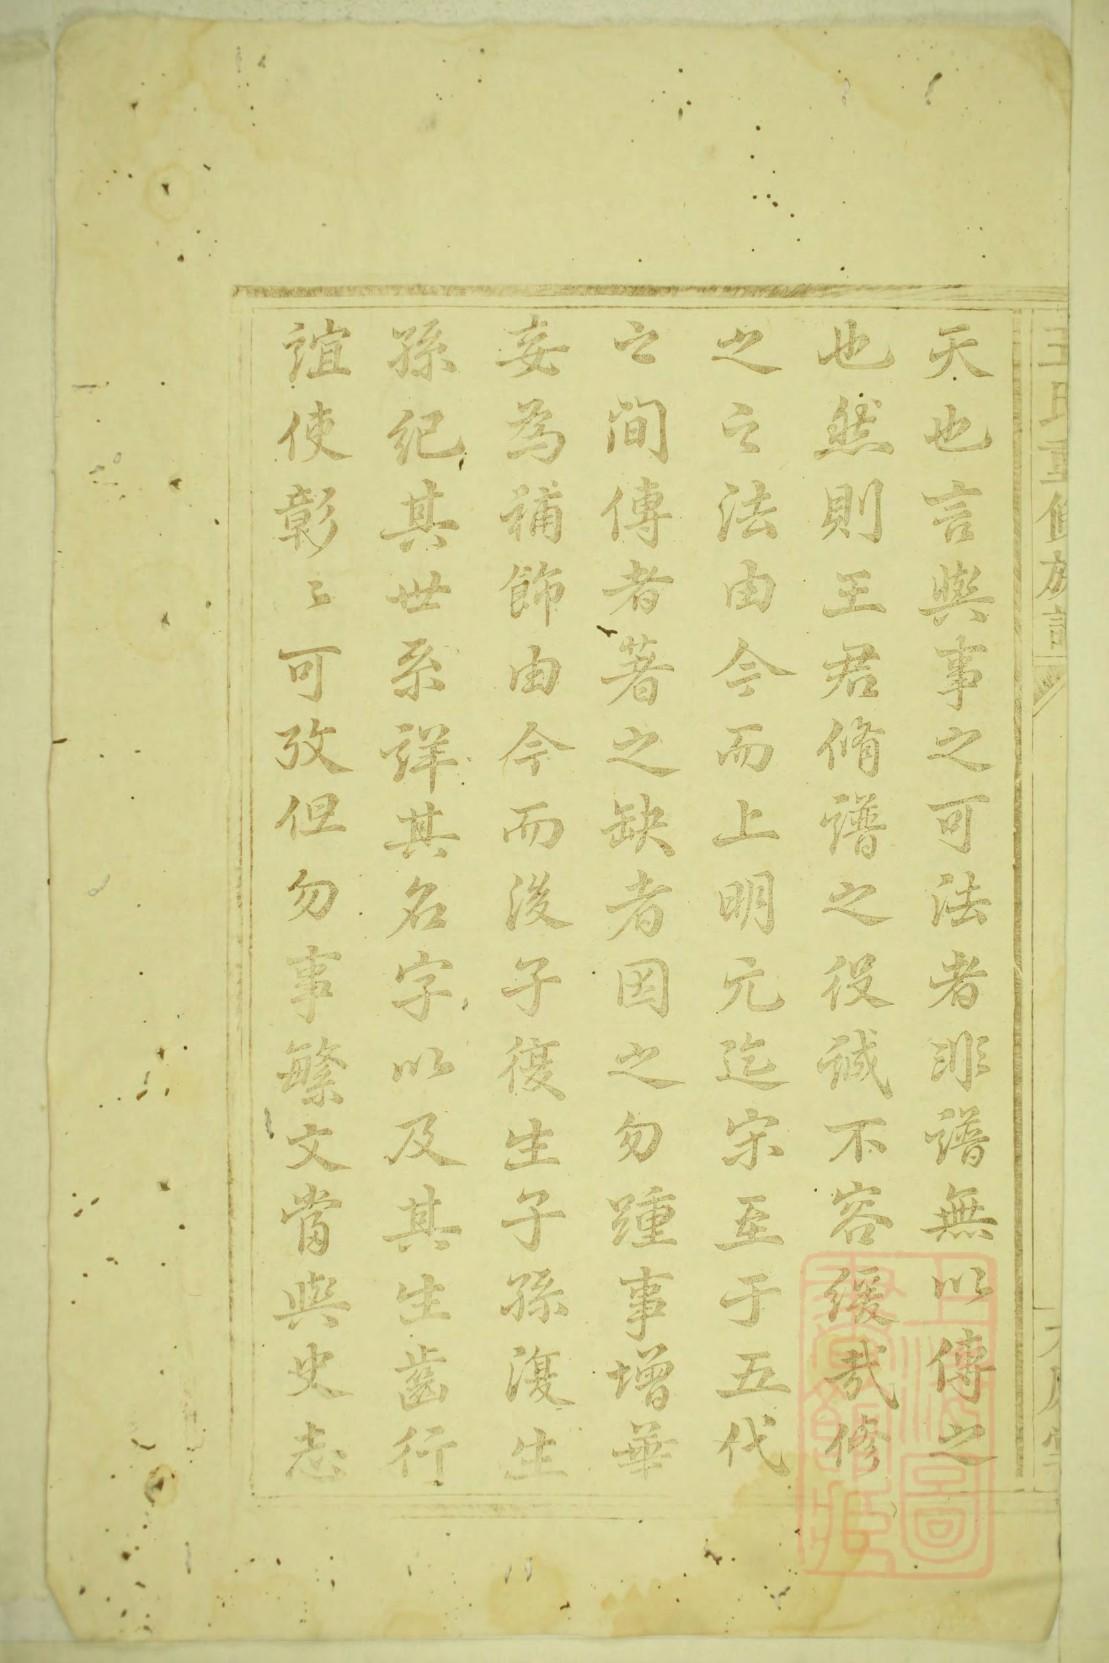 王氏重修族譜
天也言與事之可法者非譜無以傳之
也然則王君脩譜之役誠不容緩哉修
之之法由今而上明元迄宋至于五代
之間傳者著之缺者因之勿踵事增華
妄為補飾由今而後子復生子孫復生
孫紀其世系詳其名字以及其生齒行
誼使彰〻可攷但勿事繁文當與史志
上海圖書館藏